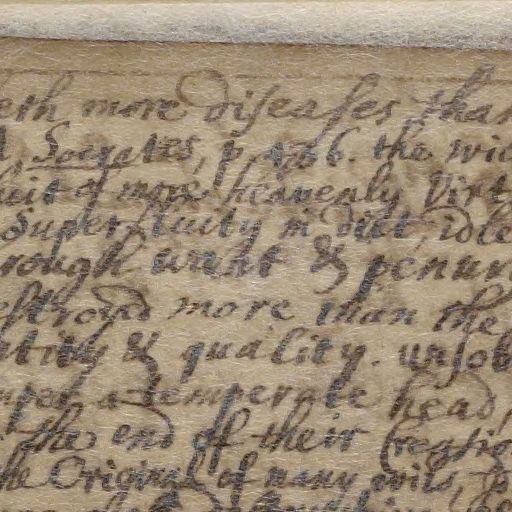 eth more diseases than
Socrates, p. 456. the wic
uit of more heavenly Virt
Superfluity in diet, idle
rough want & penury
estroyd more than the
ntity & quality. unsob
mper a temperate head,
the end of their Creation
the Original of many evils, p